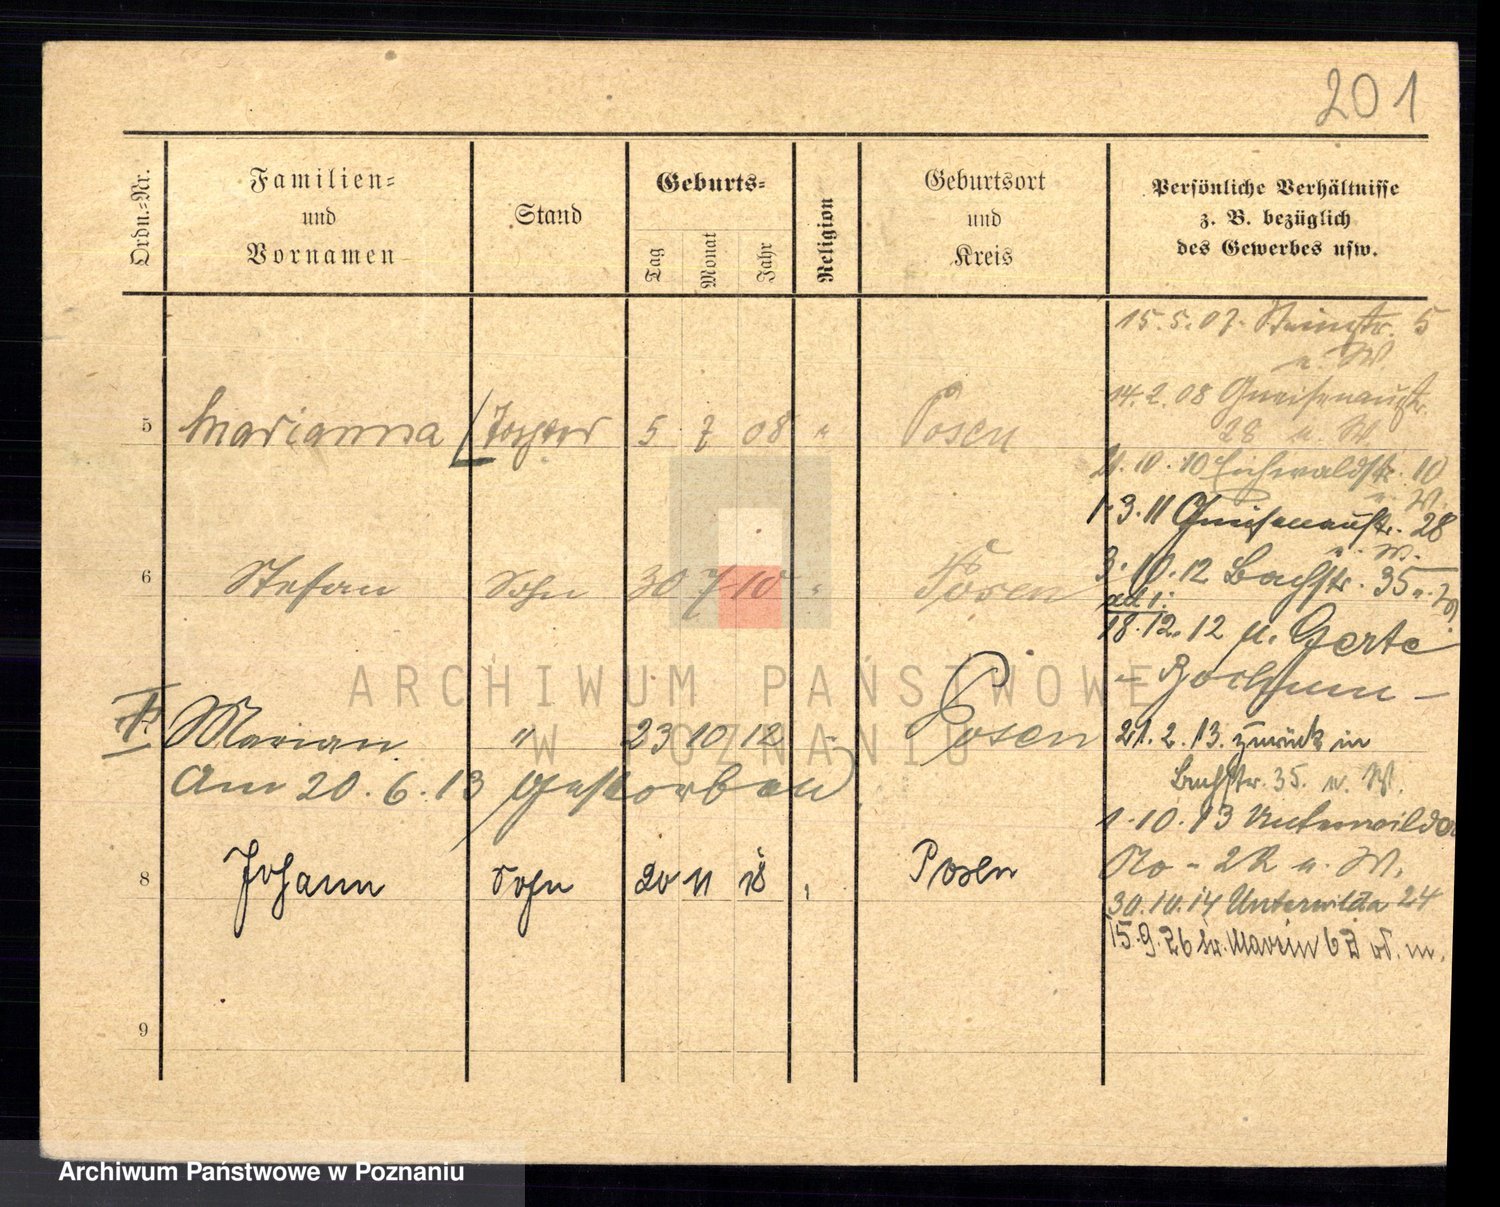 201
Ordn.-Nr.
Familien-
und
Vornamen
Stand
Geburts-
Tag
Monat
Jahr
Religion
Geburtsort
und
Kreis
Persönliche Verhältnisse
z. B. bezüglich
des Gewerbes usw.
15.5.07. Steinstr. 5
u. W.
14.2.08 Gneisenaustr.
28 u. W.
5 Marianna Tochter 5 7 08 " Posen
10.10 Eichwaldstr. 10
u. W.
1.3.11 Gneisenaustr. 28
u. W.
6 Stefan Sohn 30 7 10 " Posen
3.10.12 Bachstr. 35
ad 1.
18.12.12 n. Gerte
- Bochum -
Marian " 23 10 12 " Posen
21.2.13. zurück in
Am 20.6.13 gestorben.
Bachstr. 35. u. W.
1.10.13 Unterwilda
u. W.
8 Johann Sohn 20 11 18 Posen
30.10.14 Unterwilda 24
15.9.26 Marcin
9
ARCHIWUM PAŃSTWOWE
W POZNANIU
Archiwum Państwowe w Poznaniu